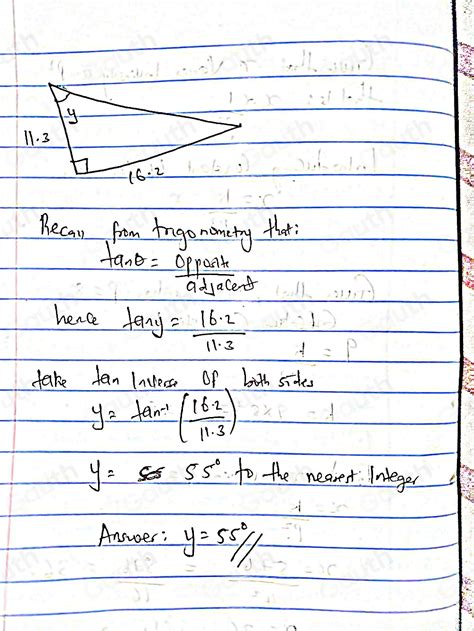 y
11.3
16.2
Recall from trigonometry that:
tanθ = Opposite
adjacent
hence tany = 16.2
11.3
take tan Inverse of both sides
y = tan-1 (16.2
11.3)
y = 55° to the nearest Integer
Answer: y = 55°//